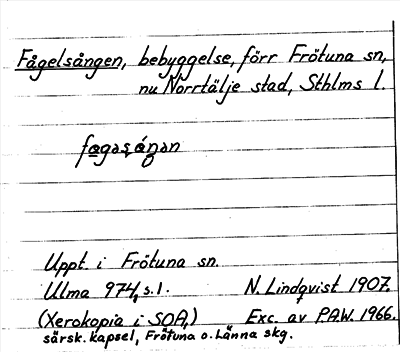 Fågelsången, bebyggelse, förr Frötuna sn,
nu Norrtälje stad, Sthlms l.
Uppt. i Frötuna sn.
Ulma 974, s. 1. N. Lindqvist 1907.
(Xerokopia i SOA,) Exc. av P.A.W. 1966.
särsk. kapsel, Frötuna o. Länna skg.